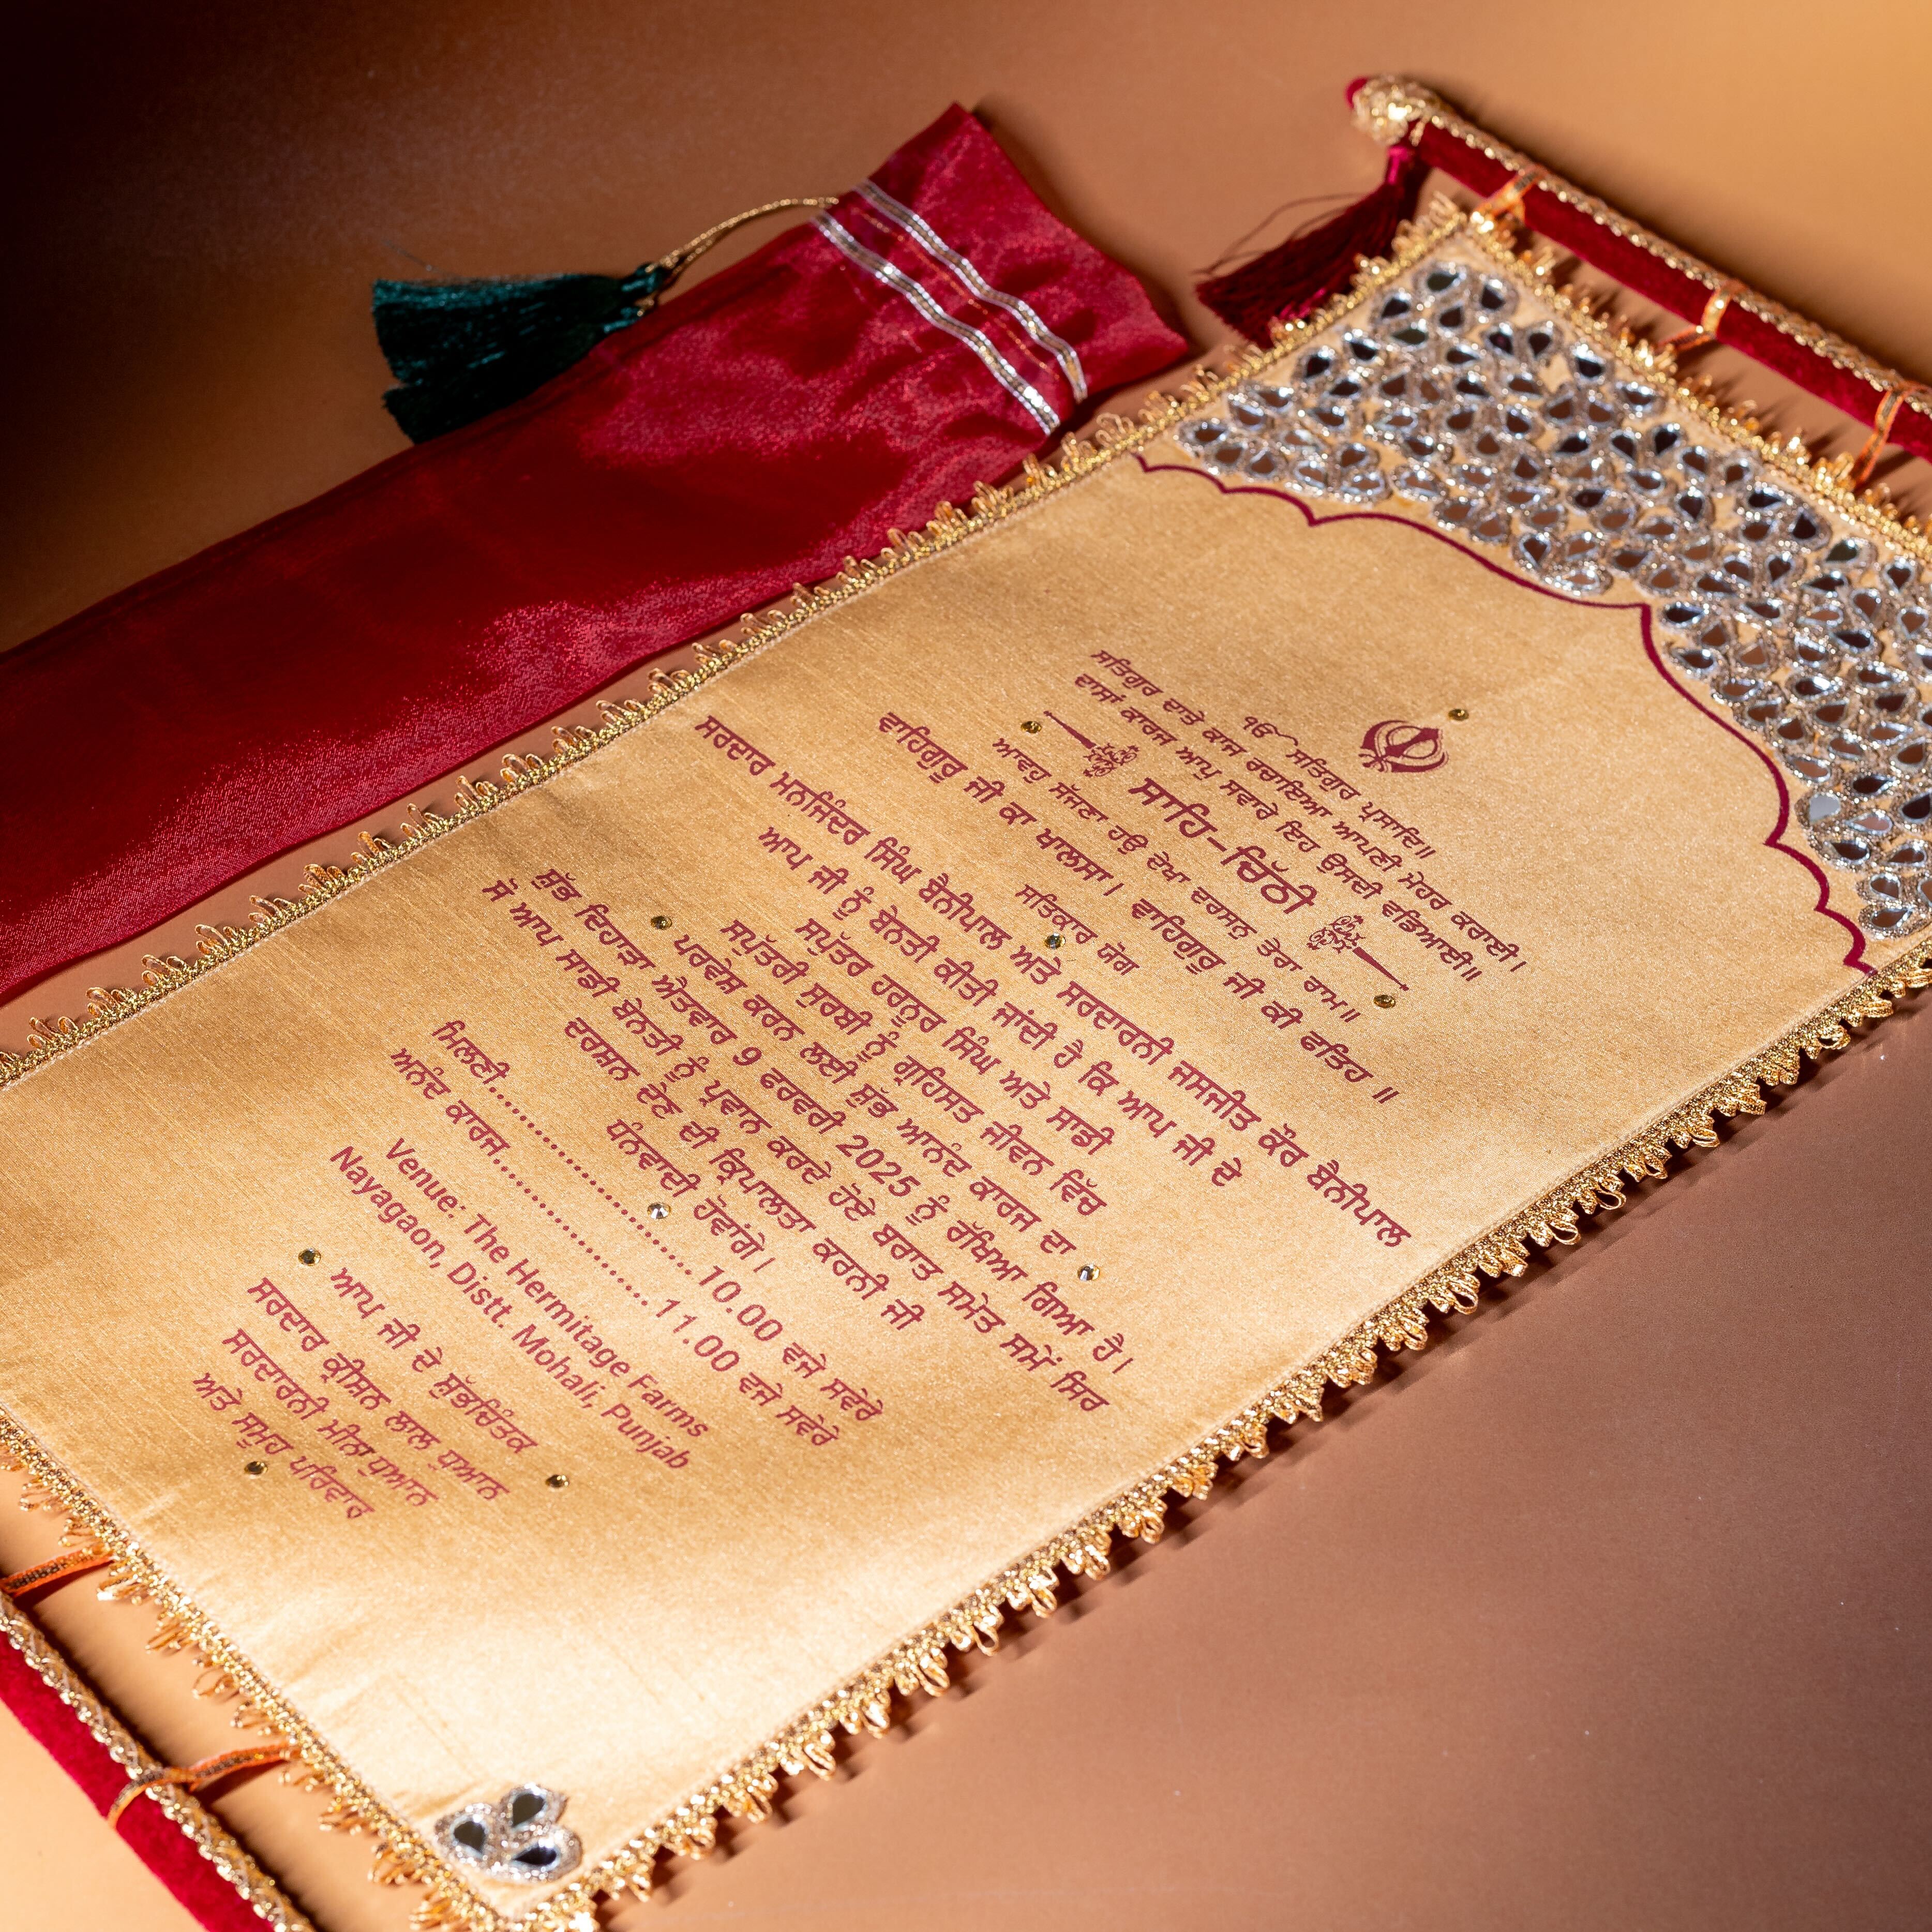 ੴ ਸਤਿਗੁਰ ਪ੍ਰਸਾਦਿ॥
ਸਤਿਗੁਰ ਦਾਤੇ ਕਾਜ ਰਚਾਇਆ ਆਪਣੀ ਮੇਹਰ ਕਰਾਈ।
ਦਾਸਾਂ ਕਾਰਜ ਆਪ ਸਵਾਰੇ ਇਹ ਉਸਦੀ ਵਡਿਆਈ॥
ਸਾਹਿ-ਚਿੱਠੀ
ਆਵਹੁ ਸੱਜਣਾ ਹਉ ਦੇਖਾ ਦਰਸਨ ਤੇਰਾ ਰਾਮ॥
ਵਾਹਿਗੁਰੂ ਜੀ ਕਾ ਖਾਲਸਾ। ਵਾਹਿਗੁਰੂ ਜੀ ਕੀ ਫਤਿਹ ॥
ਸਤਿਕਾਰ ਯੋਗ
ਸਰਦਾਰ ਮਨਜਿੰਦਰ ਸਿੰਘ ਬੈਨੀਪਾਲ ਅਤੇ ਸਰਦਾਰਨੀ ਜਸਜੀਤ ਕੌਰ ਬੈਨੀਪਾਲ
ਆਪ ਜੀ ਨੂੰ ਬੇਨਤੀ ਕੀਤੀ ਜਾਂਦੀ ਹੈ ਕਿ ਆਪ ਜੀ ਦੇ
ਸਪੁੱਤਰ ਹਰਨੂਰ ਸਿੰਘ ਅਤੇ ਸਾਡੀ
ਸਪੁੱਤਰੀ ਸੁਰਭੀ ਨੂੰ ਗ੍ਰਹਿਸਤ ਜੀਵਨ ਵਿੱਚ
ਪਰਵੇਸ਼ ਕਰਨ ਲਈ ਸ਼ੁੱਭ ਆਨੰਦ ਕਾਰਜ ਦਾ
ਸ਼ੁੱਭ ਦਿਹਾੜਾ ਐਤਵਾਰ 9 ਫਰਵਰੀ 2025 ਨੂੰ ਰੱਖਿਆ ਗਿਆ ਹੈ।
ਸੋ ਆਪ ਸਾਡੀ ਬੇਨਤੀ ਨੂੰ ਪ੍ਰਵਾਨ ਕਰਦੇ ਹੋਏ ਬਰਾਤ ਸਮੇਤ ਸਮੇਂ ਸਿਰ
ਦਰਸ਼ਨ ਦੇਣ ਦੀ ਕ੍ਰਿਪਾਲਤਾ ਕਰਨੀ ਜੀ
ਧੰਨਵਾਦੀ ਹੋਵਾਂਗੇ।
ਮਿਲਣੀ.............................. 10.00 ਵਜੇ ਸਵੇਰੇ
ਅਨੰਦ ਕਾਰਜ....................... 11.00 ਵਜੇ ਸਵੇਰੇ
Venue: The Hermitage Farms
Nayagaon, Distt. Mohali, Punjab
ਆਪ ਜੀ ਦੇ ਸ਼ੁੱਭਚਿੰਤਕ
ਸਰਦਾਰ ਕ੍ਰੀਸ਼ਨ ਲਾਲ ਧੁਆਨ
ਸਰਦਾਰਨੀ ਮੀਨਾ ਧੁਆਨ
ਅਤੇ ਸਮੂਹ ਪਰਿਵਾਰ